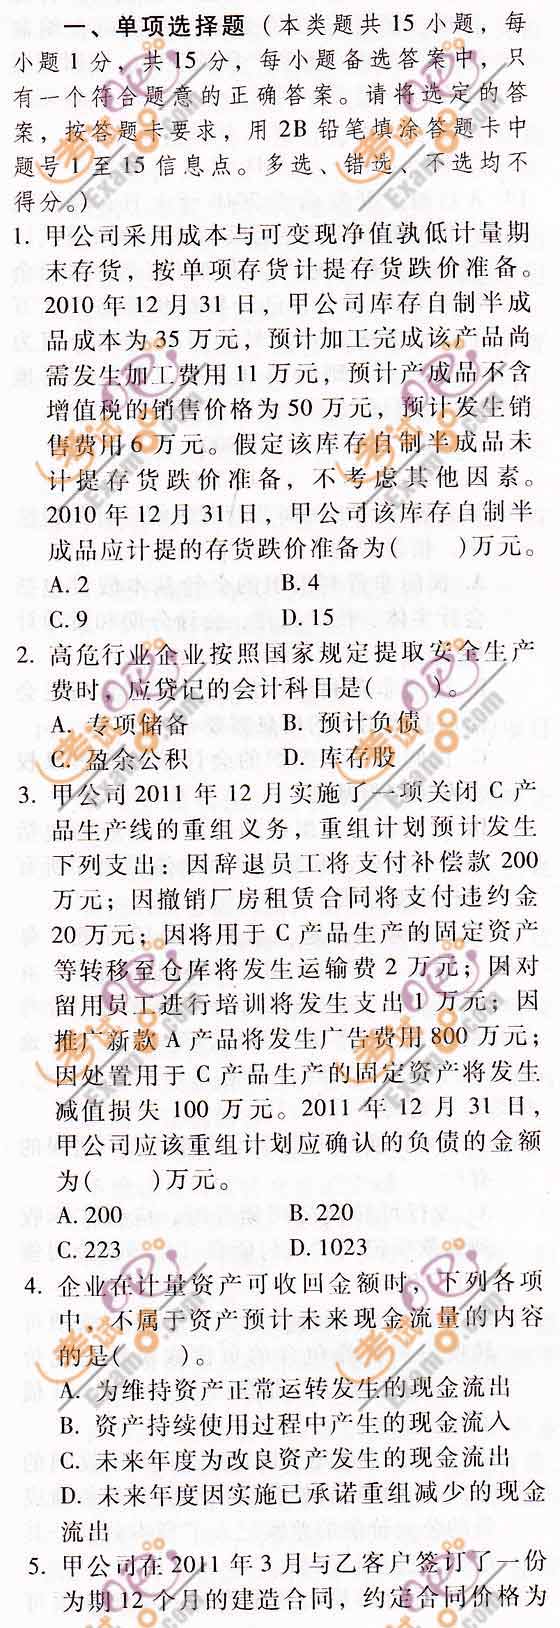 一、单项选择题（本类题共 15 小题，每
小题 1 分，共 15 分，每小题备选答案中，只
有一个符合题意的正确答案。请将选定的答
案，按答题卡要求，用 2B 铅笔填涂答题卡中
题号 1 至 15 信息点。多选、错选、不选均不
得分。）
1. 甲公司采用成本与可变现净值孰低计量期
末存货，按单项存货计提存货跌价准备。
2010 年 12 月 31 日，甲公司库存自制半成
品成本为 35 万元，预计加工完成该产品尚
需发生加工费用 11 万元，预计产成品不含
增值税的销售价格为 50 万元，预计发生销
售费用 6 万元。假定该库存自制半成品未
计提存货跌价准备，不考虑其他因素。
2010 年 12 月 31 日，甲公司该库存自制半
成品应计提的存货跌价准备为(　　)万元。
A. 2　　B. 4
C. 9　　D. 15
2. 高危行业企业按照国家规定提取安全生产
费时，应贷记的会计科目是(　　)。
A. 专项储备　　B. 预计负债
C. 盈余公积　　D. 库存股
3. 甲公司 2011 年 12 月实施了一项关闭 C 产
品生产线的重组义务，重组计划预计发生
下列支出：因辞退员工将支付补偿款 200
万元；因撤销厂房租赁合同将支付违约金
20 万元；因将用于 C 产品生产的固定资产
等转移至仓库将发生运输费 2 万元；因对
留用员工进行培训将发生支出 1 万元；因
推广新款 A 产品将发生广告费用 800 万元；
因处置用于 C 产品生产的固定资产将发生
减值损失 100 万元。2011 年 12 月 31 日，
甲公司应该重组计划应确认的负债的金额
为(　　)万元。
A. 200　　B. 220
C. 223　　D. 1023
4. 企业在计量资产可收回金额时，下列各项
中，不属于资产预计未来现金流量的内容
的是(　　)。
A. 为维持资产正常运转发生的现金流出
B. 资产持续使用过程中产生的现金流入
C. 未来年度为改良资产发生的现金流出
D. 未来年度因实施已承诺重组减少的现金
流出
5. 甲公司在 2011 年 3 月与乙客户签订了一份
为期 12 个月的建造合同，约定合同价格为